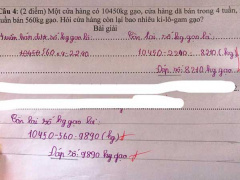 Câu 4: (2 điểm) Một cửa hàng có 10450kg gạo, cửa hàng đã bán trong 4 tuần,
tuần bán 560kg gạo. Hỏi cửa hàng còn lại bao nhiêu ki-lô-gam gạo?
Bài giải
4 tuần bán được số kg gạo là: Còn lại số kg gạo là:
10450 - 2240 = 8210 (kg)
Đáp số: 8210 kg gạo
Còn lại số kg gạo là:
10450-560=9890 (kg)
Đáp số: 9890 kg gạo